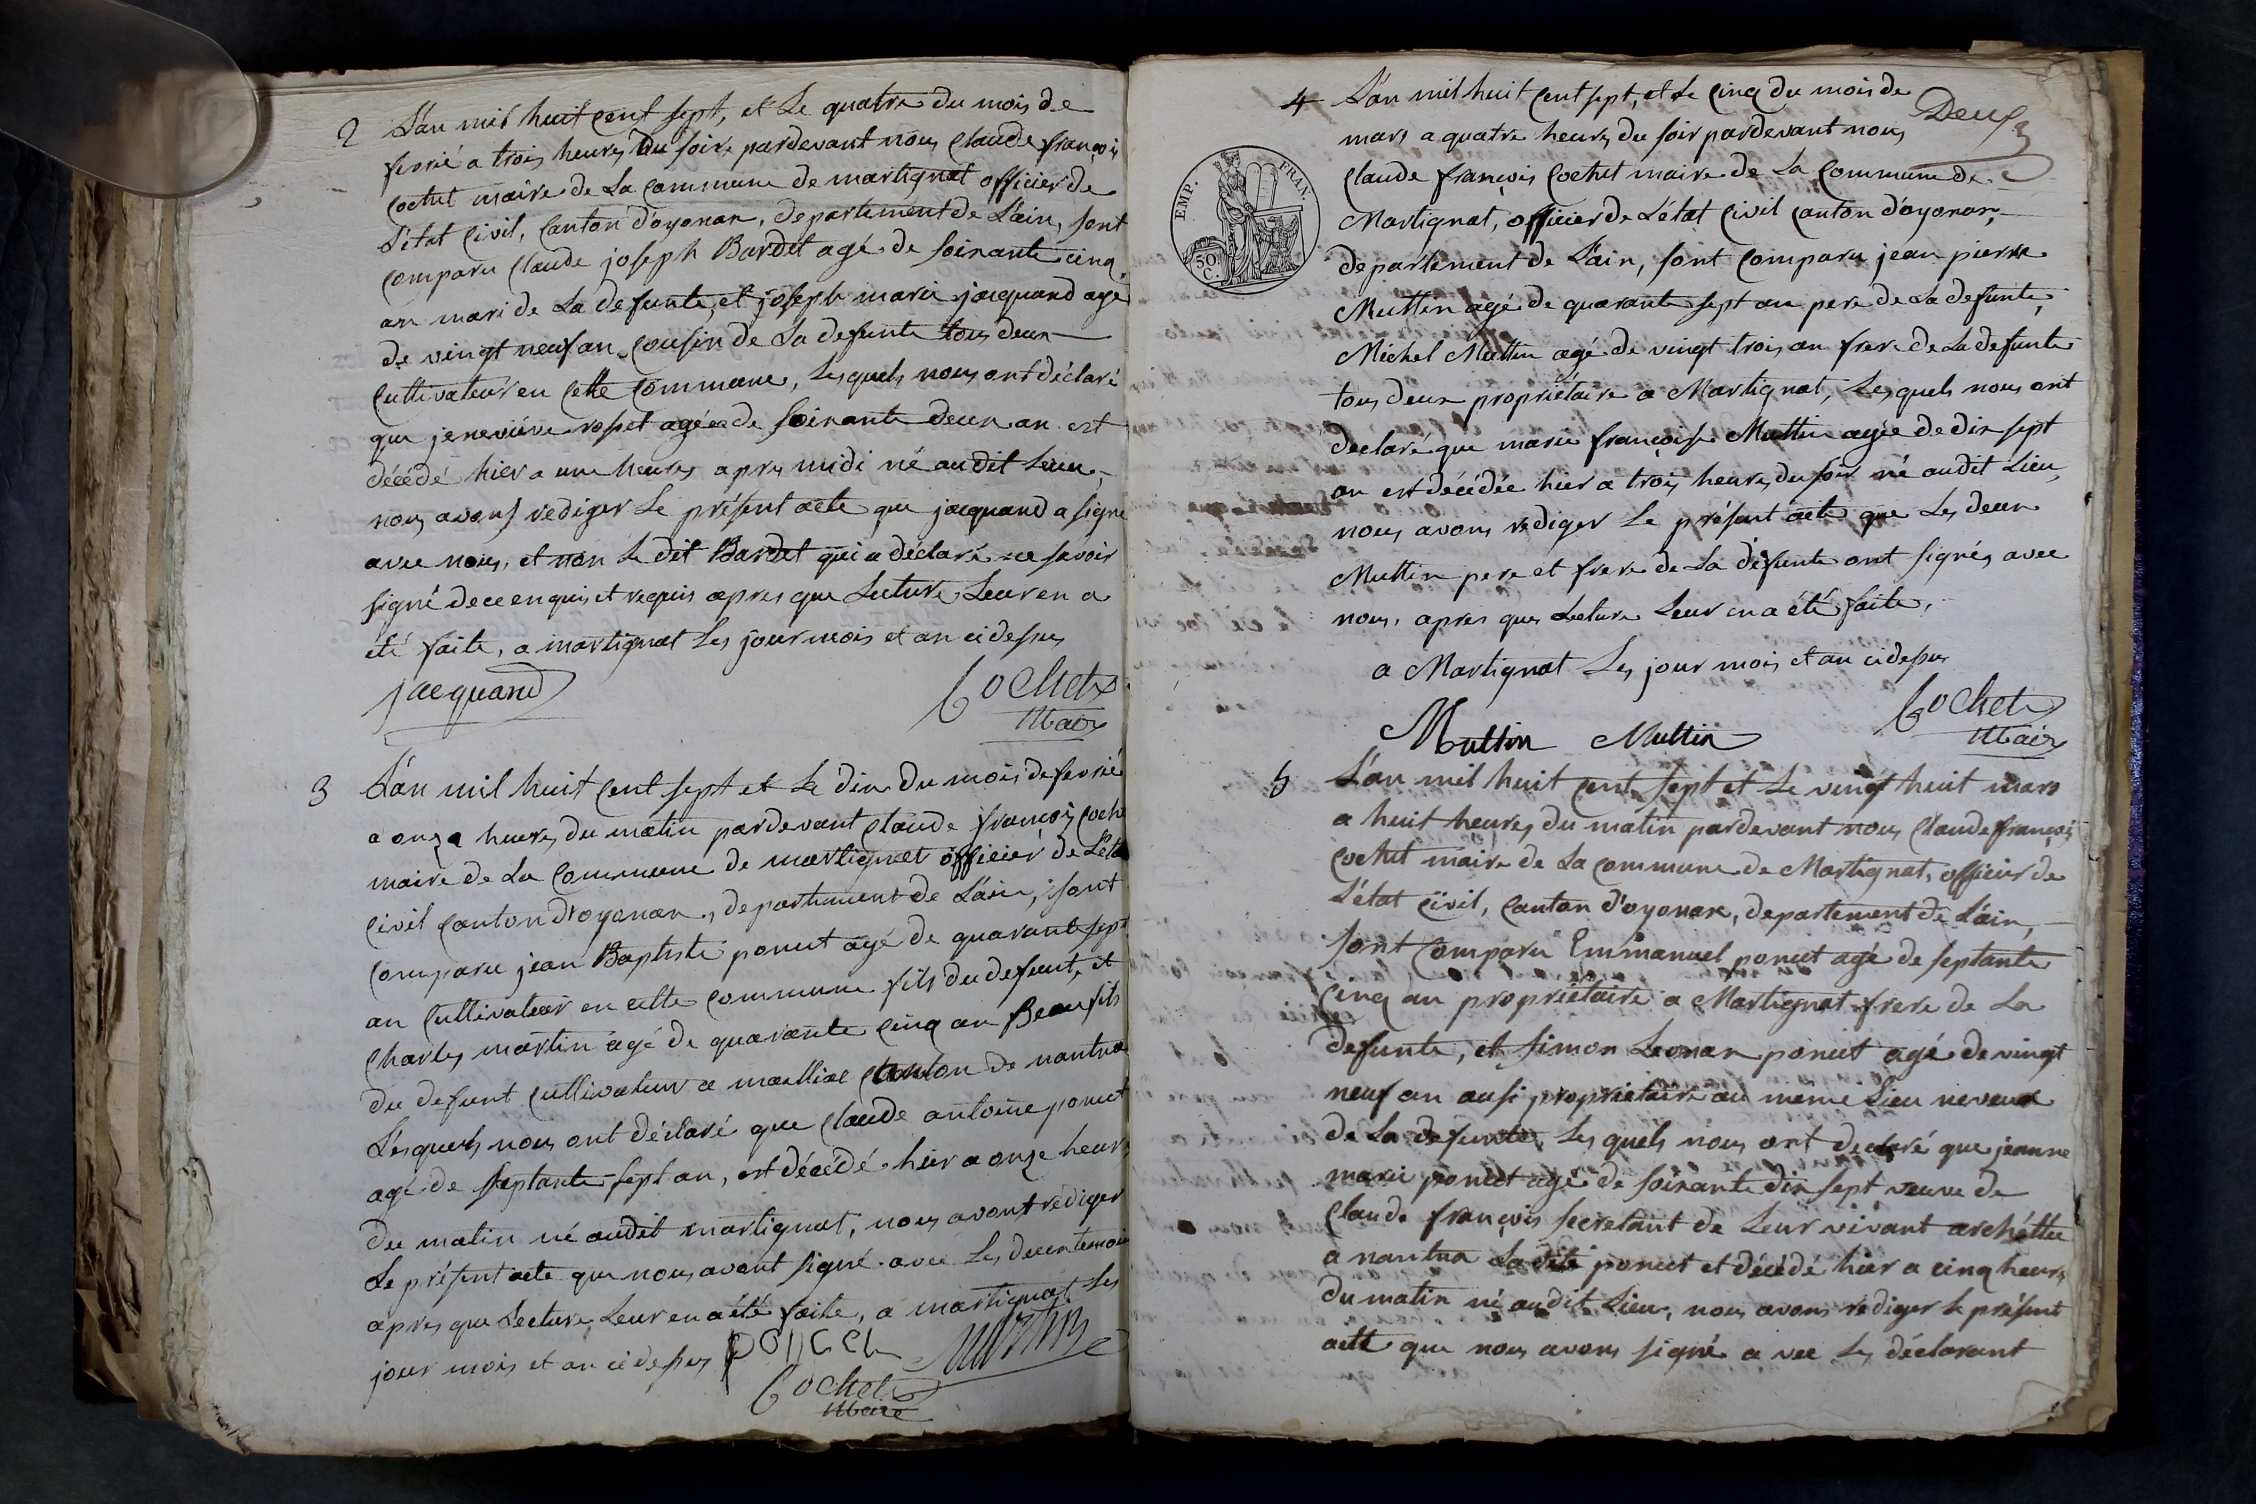 2 L'an mil huit cent sept, et Le quatre du mois de
fevrié a trois heures du soire pardevant nous Claude françois
Cochet maire de La Commune de martignat officier de
L'état Civil, Canton d'oyonax, departement de L'ain, sont
Comparu Claude joseph Bardet agé de soixante cinq
an mari de La defunte, et joseph marie jacquand agé
de vingt neuf an cousin de La defunte tous deux
Cultivateur en Cette Commune, Lesquels nous ont déclaré
que jeneviéve rosset agée de soixante deux an est
décédé hier a une heures apres midi né audit Lieu,
nous avons rediger Le présent acte que jacquand a signé
avec nous, et non Le dit Bardet qui a déclaré ne savoir
signé de ce enquis et requis apres que Lecture Leur en a
été faite, a martignat Les jour mois et an ci dessus
jacquand Cochet
Maire
3 L'an mil huit Cent sept et Le dix du mois de fevrié
a onze heures du matin pardevant Claude françois Coche
maire de La Commune de martignat officier de L'éta
Civil Canton d'oyonax, departement de L'ain, sont
Comparu jean Baptiste poncet agé de quarante sept
an Cultivateur en cette Commune fils du defunt, et
Charles martin agé de quarante cinq an Beau fils
du defunt Cultivateur a maillial Canton de nantua
Lesquels nous ont déclaré que Claude antoine poncet
agé de septante sept an, est décédé hier a onze heurs
du matin né audit martignat, nous avont rediger
Le présent acte que nous avont signé avec Les deux temoin
apres que Lecture Leur en a été faite, a martignat Les
jour mois et an ci dessus poncet martin
Cochet
Maire
Deux
4 L'an mil huit Cent sept, et Le Cinq du mois de
mars a quatre heures du soir pardevant nous
Claude françois Cochet maire de La Commune de
Martignat, officier de L'état Civil Canton d'oyonax,
departement de L'ain, sont Comparu jean pierre
Muttin agé de quarante sept an pere de La defunte,
Michel Muttin agé de vingt trois an frere de La defunte
tous deux propriétaire a Martignat, Lesquels nous ont
declaré que marie françoise Muttin agée de dix sept
an est décédée hier a trois heures du soir né audit Lieu,
nous avons rediger Le présent acte que Les deux
Muttin pere et frere de La défunte ont signés avec
nous, apres que Lecture Leur en a été faite,
a Martignat Les jour mois et an ci dessus
Cochet
Muttin Muttin Maire
EMP. FRAN.
50
C.
5 L'an mil huit Cent sept et Le vingt huit mars
a huit heures du matin pardevant nous Claude françois
Cochet maire de La Commune de Martignat, officier de
L'état Civil, Canton d'oyonax, departement de L'ain,
sont Comparu Emmanuel poncet agé de septante
Cinq an propriétaire a Martignat frere de La
defunte, et simon Leonar poncet agé de vingt
neuf an ausi propriétaire au même Lieu neveux
de La defunte, Lesquels nous ont declaré que jeanne
marie poncet agé de soixante dix sept veuve de
Claude françois secretant de Leur vivant
a nantua Ladite poncet et décédé hier a cinq heurs
du matin né audit Lieu, nous avons rediger Le présent
acte que nous avons signé avec Les déclarant